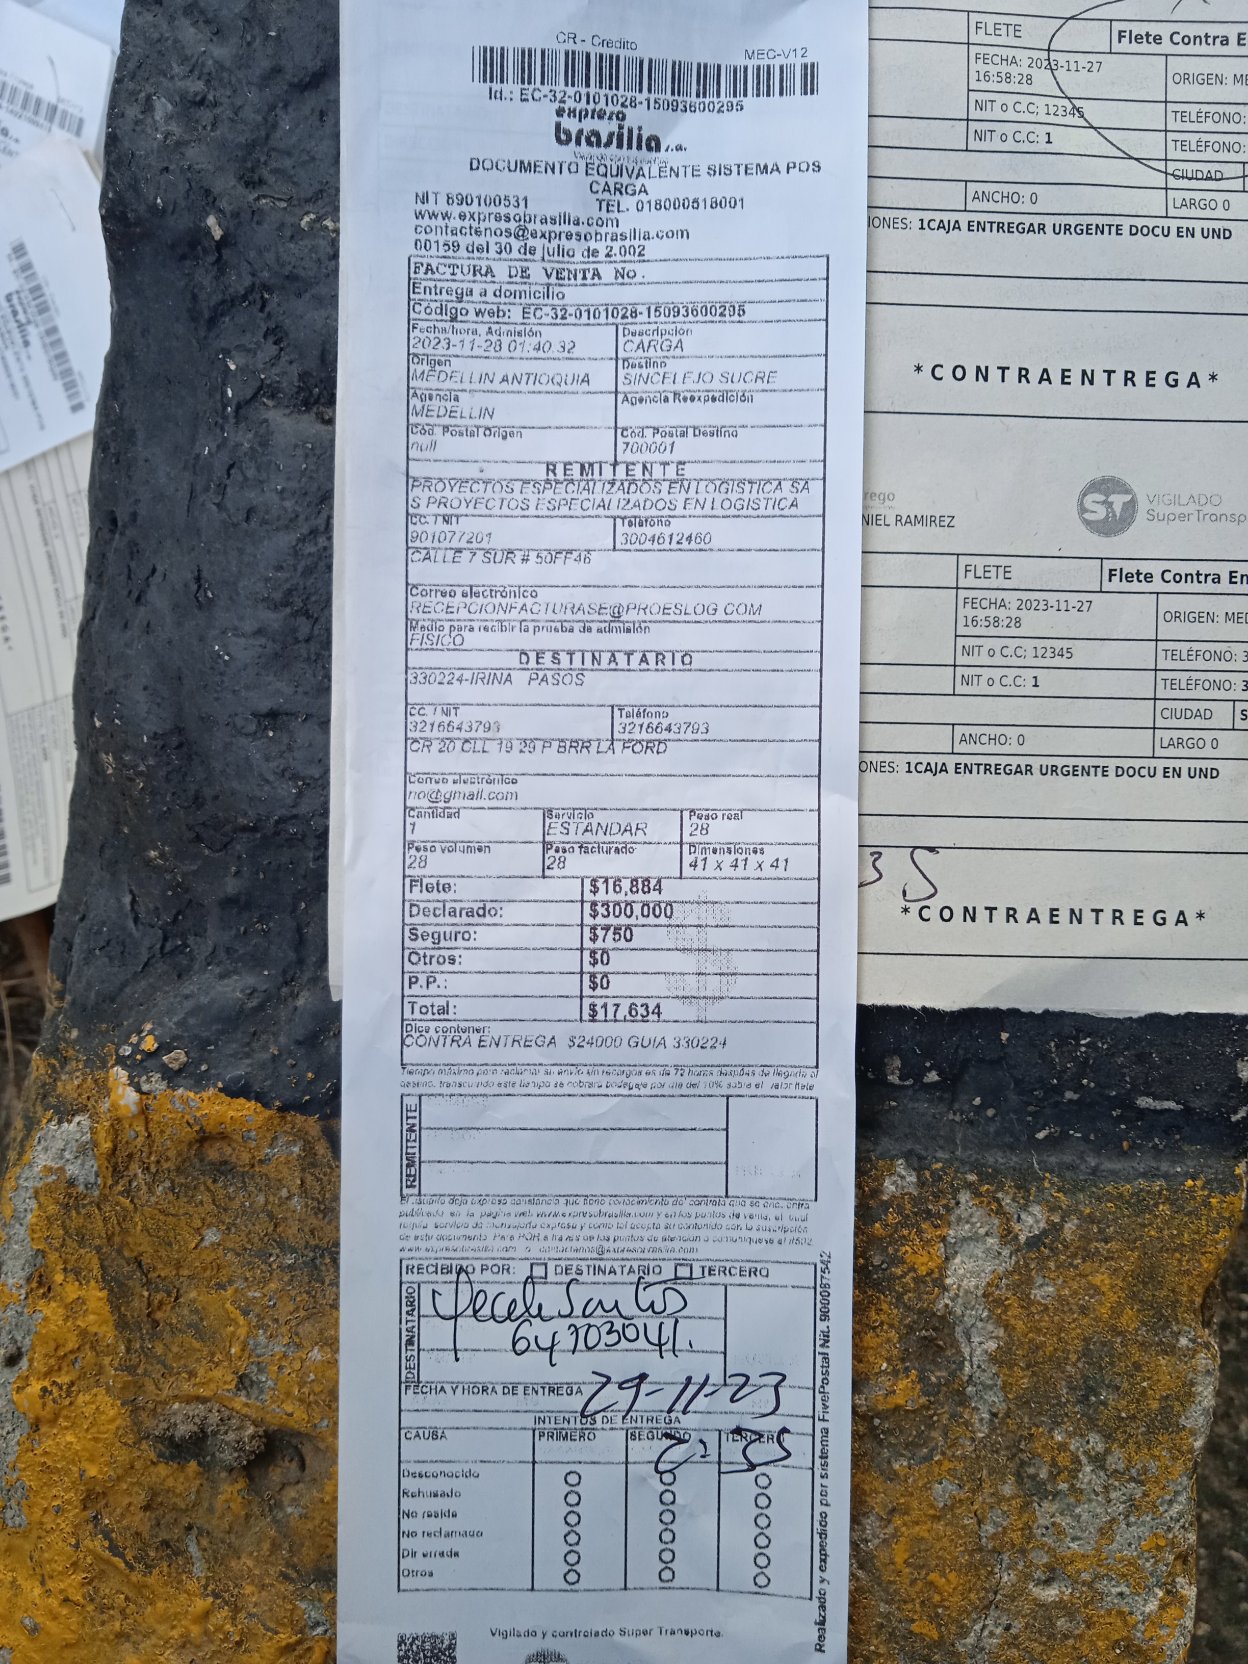 CR - Crédito
MEC-V12
Id.: EC-32-0101028-15093600295
expreso
brasilia s.a.
DOCUMENTO EQUIVALENTE SISTEMA POS
CARGA
NIT 890100531 TEL. 018000518001
www.expresobrasilia.com
contactenos@expresobrasilia.com
00159 del 30 de julio de 2.002
FACTURA DE VENTA No.
Entrega a domicilio
Código web: EC-32-0101028-15093600295
Fecha/hora, Admisión Descripción
2023-11-28 01:40.32 CARGA
Origen Destino
MEDELLIN ANTIOQUIA SINCELEJO SUCRE
Agencia Agencia Reexpedición
MEDELLIN
Cód. Postal Origen Cód. Postal Destino
null 700001
REMITENTE
PROYECTOS ESPECIALIZADOS EN LOGISTICA SA
S PROYECTOS ESPECIALIZADOS EN LOGISTICA
CC. / NIT Teléfono
901077201 3004612460
CALLE 7 SUR # 50FF46
Correo electrónico
RECEPCIONFACTURASE@PROESLOG.COM
Medio para recibir la prueba de admisión
FISICO
DESTINATARIO
330224-IRINA PASOS
CC. / NIT Teléfono
3216643793 3216643793
CR 20 CLL 19 29 P BRR LA FORD
Correo electrónico
no@gmail.com
Cantidad Servicio Peso real
1 ESTANDAR 28
Peso volumen Peso facturado Dimensiones
28 28 41 x 41 x 41
Flete: $16,884
Declarado: $300,000
Seguro: $750
Otros: $0
P.P.: $0
Total: $17,634
Dice contener:
CONTRA ENTREGA $24000 GUIA 330224
Tiempo máximo para reclamar su envío sin recargos es de 72 horas después de llegada al
destino, transcurrido este tiempo se cobrará bodegaje por día del 10% sobre el valor flete
REMITENTE
RECIBIDO POR: DESTINATARIO TERCERO
DESTINATARIO
64703041.
FECHA Y HORA DE ENTREGA 29-11-23
INTENTOS DE ENTREGA
CAUSA PRIMERO SEGUNDO TERCERO
2:35
Desconocido
Rehusado
No reside
No reclamado
Dir errada
Otros
Vigilado y controlado Super Transporte.
Realizado y expedido por sistema FivePostal Nit. 900087542
FLETE Flete Contra E
FECHA: 2023-11-27
16:58:28
ORIGEN: ME
NIT o C.C; 12345 TELÉFONO:
NIT o C.C: 1 TELÉFONO:
CIUDAD
ANCHO: 0 LARGO 0
IONES: 1CAJA ENTREGAR URGENTE DOCU EN UND
*CONTRAENTREGA*
rego
NIEL RAMIREZ
ST
VIGILADO
SuperTransp
FLETE Flete Contra En
FECHA: 2023-11-27
16:58:28
ORIGEN: MED
NIT o C.C; 12345 TELÉFONO: 3
NIT o C.C: 1 TELÉFONO: 3
CIUDAD S
ANCHO: 0 LARGO 0
ONES: 1CAJA ENTREGAR URGENTE DOCU EN UND
35
*CONTRAENTREGA*